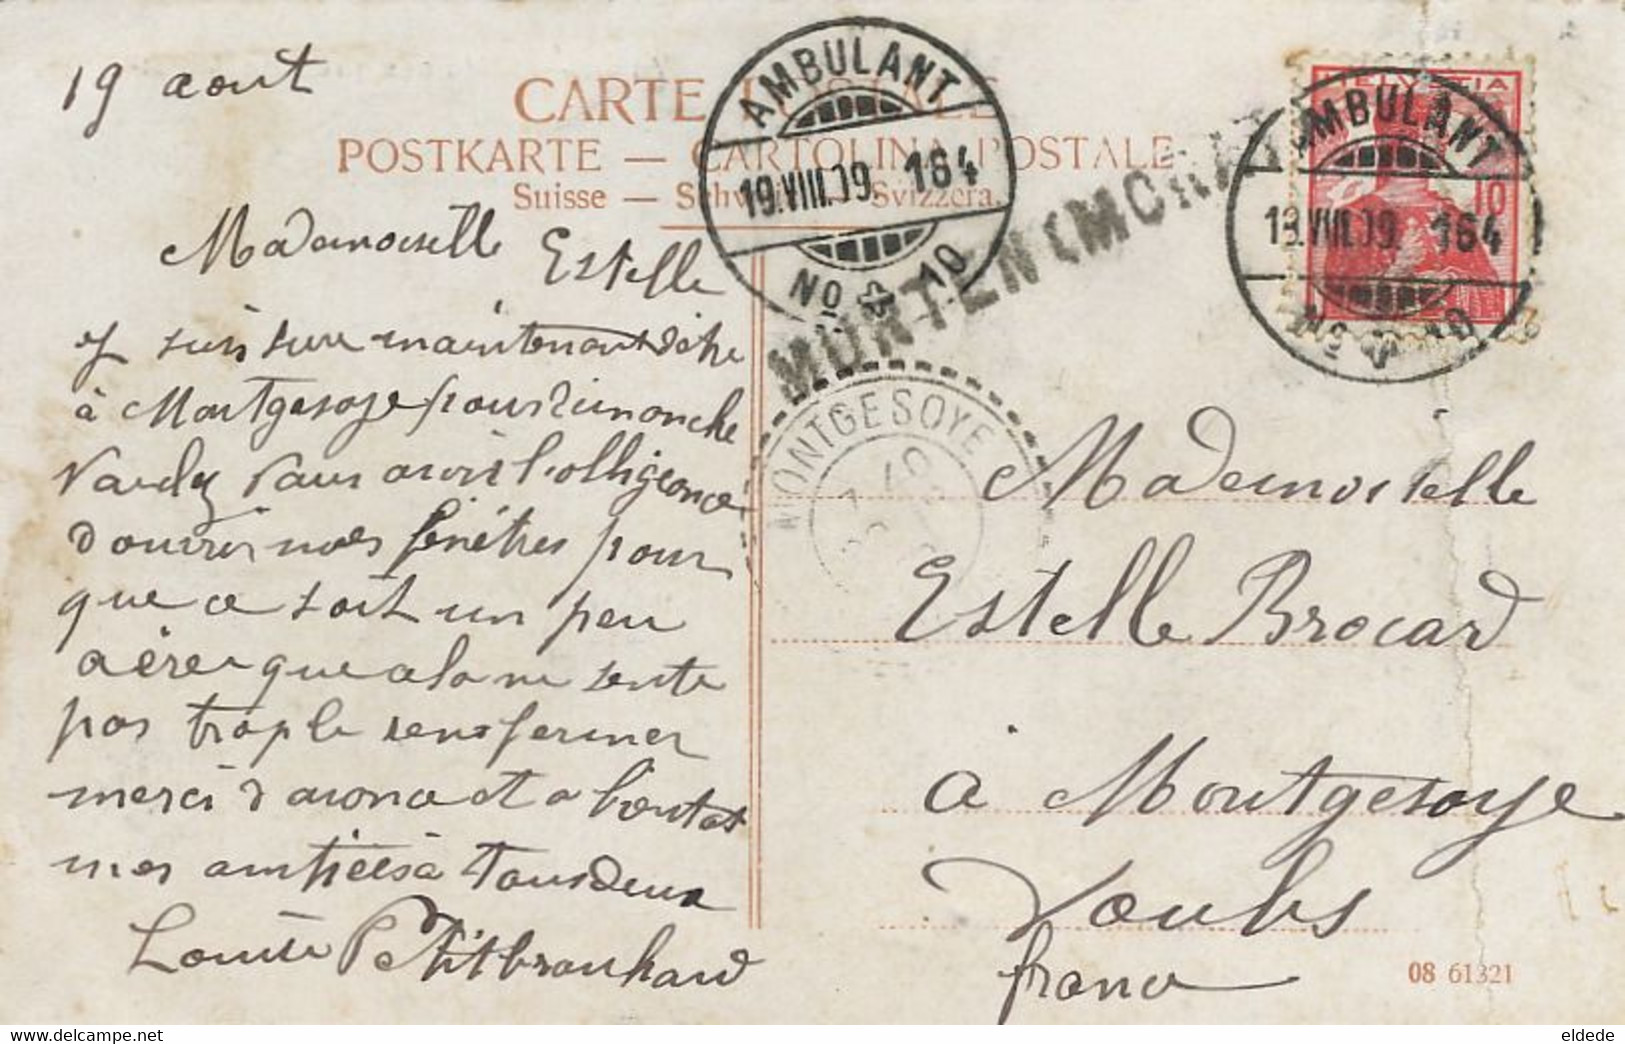 19 aout
CARTE POSTALE
POSTKARTE — CARTOLINA POSTALE
Suisse — Schweiz — Svizzera.
AMBULANT
19.VIII.09 164
No 10
MURTEN (MORAT)
HELVETIA
10
AMBULANT
19.VIII.09. 164
No 10
MONTGESOYE
Mademoiselle Estelle
suis sure maintenant d etre
à Montgesoye pour dimanche
vous avoir l obligeance
d ouvrir nos fenêtres pour
que ce soit un peu
aérer que cela ne sente
pas trop le renfermer
merci d avance et a bientot
mes amitiées à tous deux
Louise Petitbrouhard
Mademoiselle
Estelle Brocard
à Montgesoye
Doubs
france
08 61321
eldede